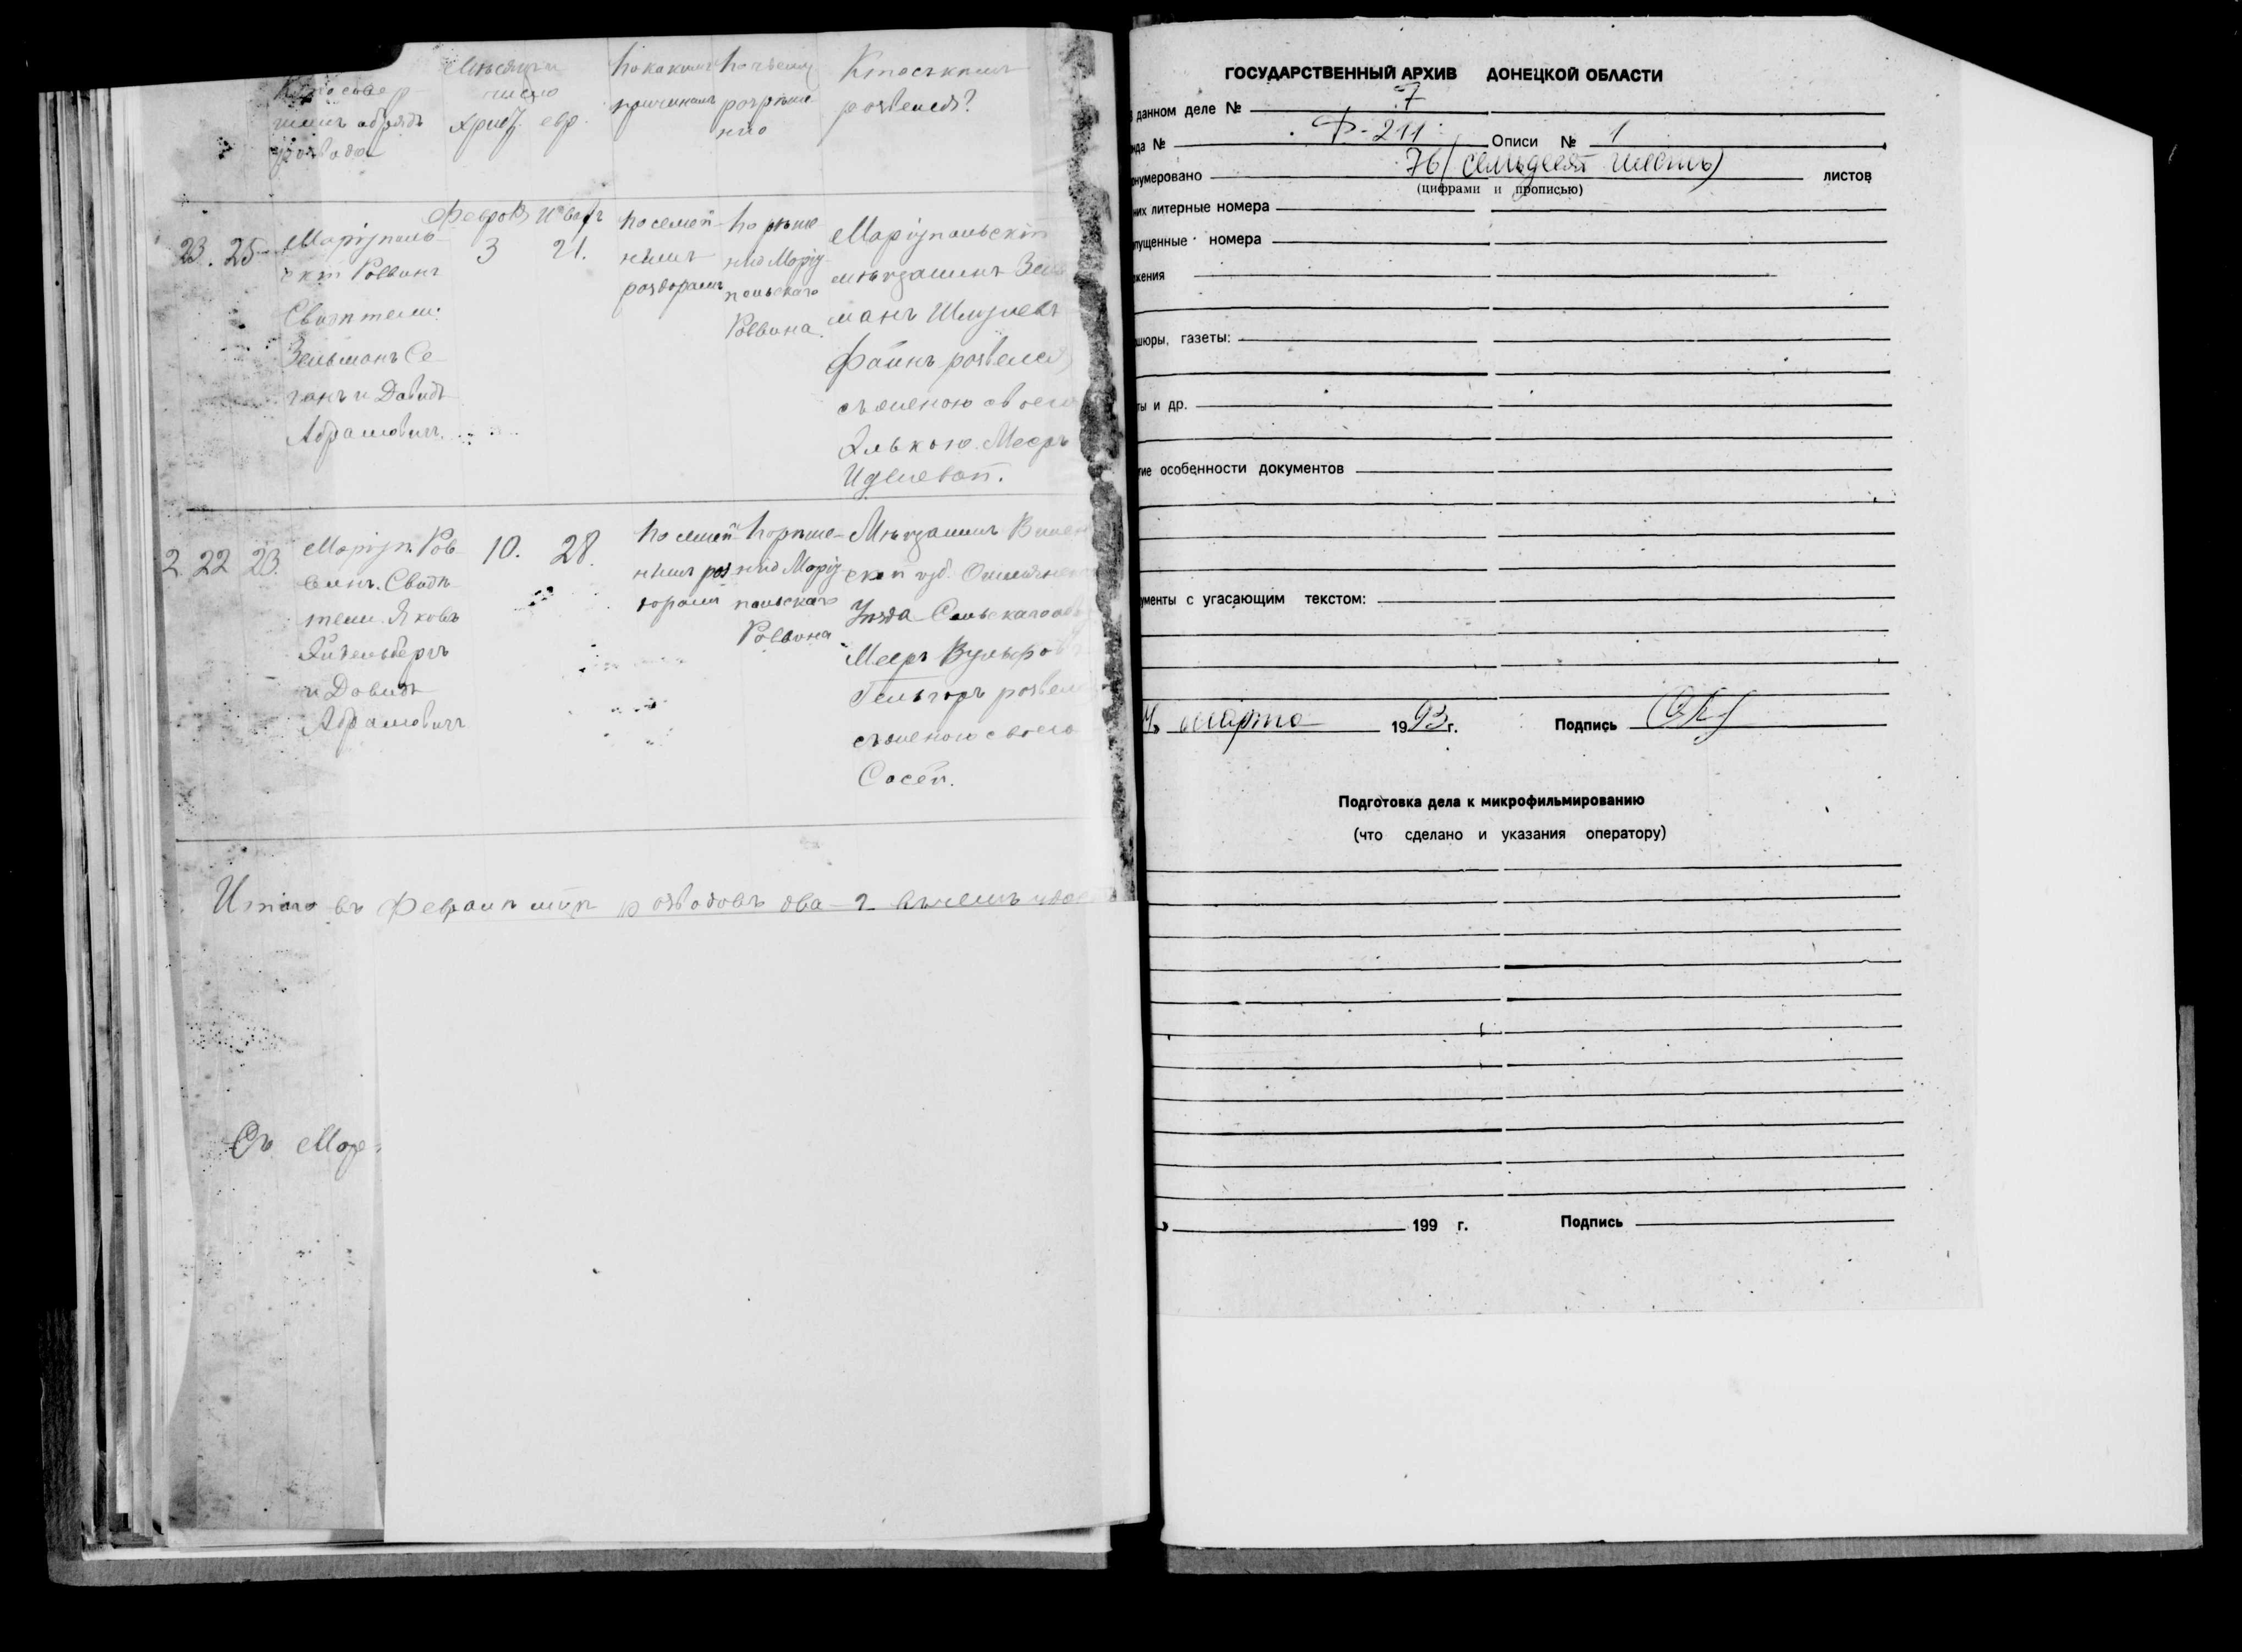 Кто совер-
шилъ обрядъ
развода
Мѣсяцъ и
число
христ. евр.
По какимъ
причинамъ
По чьему
рѣше-
нію
Кто съ кѣмъ
развелся?
23. 25
Маріуполь-
скій Раввинъ
Свидѣтели:
Зельманъ Се-
ганъ и Давидъ
Абрамовичъ.
Февраля
3
21.
По семей-
нымъ
раздорамъ
По рѣше-
нію Маріу-
польскаго
Раввина.
Маріупольскій
мѣщанинъ
манъ
Файнъ развелся
съ женою своею
Элькою Меер
2 22 23.
Маріуп. Рав-
винъ. Свидѣ-
тели. Яковъ
и Давидъ
Абрамовичъ
10. 28.
По семей-
нымъ раз-
дорамъ
По рѣше-
нію Маріу-
польскаго
Раввина
Мѣщанинъ Вилен
ской губ. Ошмянска
Уѣзда
Мееръ Вульфов
развел
съ женою своею
Сосей.
Итого въ Февралѣ м-цѣ разводовъ два - 2
ГОСУДАРСТВЕННЫЙ АРХИВ ДОНЕЦКОЙ ОБЛАСТИ
данном деле № 7
нда № Ф-211 Описи № 1
онумеровано 76 (семьдесят шесть) листов
(цифрами и прописью)
них литерные номера
пущенные номера
жения
шюры, газеты:
ты и др.
гие особенности документов
ументы с угасающим текстом:
марта 1993 г. Подпись
Подготовка дела к микрофильмированию
(что сделано и указания оператору)
199 г. Подпись